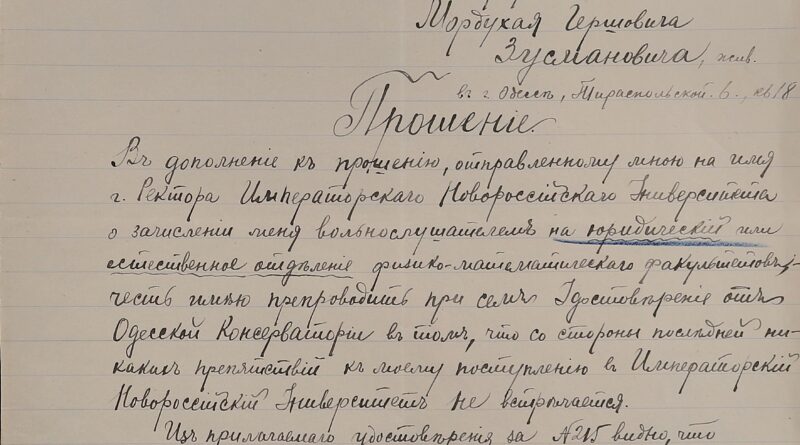 Мордухая Гершовича
Зусмановича, жив.
въ г. Одессѣ, Тираспольской. 6., кв 18
Прошеніе.
Въ дополненіе къ прошенію, отправленному мною на имя
г. Ректора Императорскаго Новороссійскаго Университета
о зачисленіи меня вольнослушателемъ на юридическій или
естественное отдѣленіе физико-математическаго факультетовъ,
честь имѣю препроводить при семъ Удостовѣреніе отъ
Одесской Консерваторіи въ томъ, что со стороны послѣдней ни-
какихъ препятствій къ моему поступленію въ Императорскій
Новороссійскій Университетъ не встрѣчается.
Изъ прилагаемаго удостовѣренія за №215 видно, что